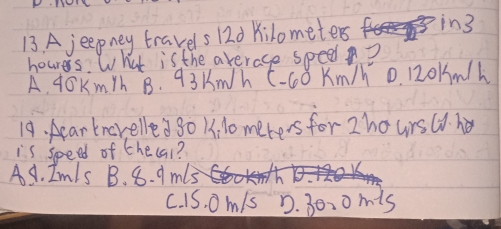 13. A jeepney travels 120 Kilometer in 3
hours. What is the average speed ?
A. 40 Km/h B. 43 Km/h C. 60 Km/h D. 120 Km/h
19. A car travelled 30 Kilo meters for 2 hours W. ho
is speed of the ca?
A. 4.2 m/s B. 8.9 m/s
C. 15.0 m/s D. 30.0 m/s